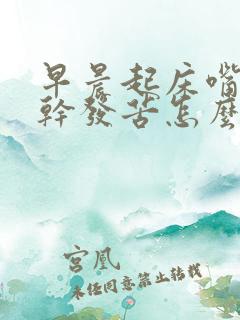 早晨起床嘴
幹發苦怎麼
宮凰
未经同意禁止转载